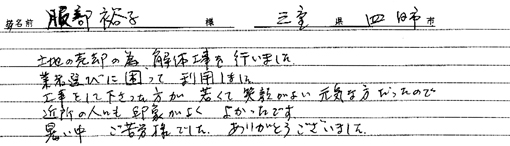 お名前 服部裕子 様 三重県 四日市市
土地の売却の為、解体工事を行いました
業者選びに困って 利用しました
工事をして下さった方が 若くて 笑顔がよい 元気な方だったので
近所の人にも 印象がよく よかったです
暑い中 ご苦労様でした。ありがとうございました。